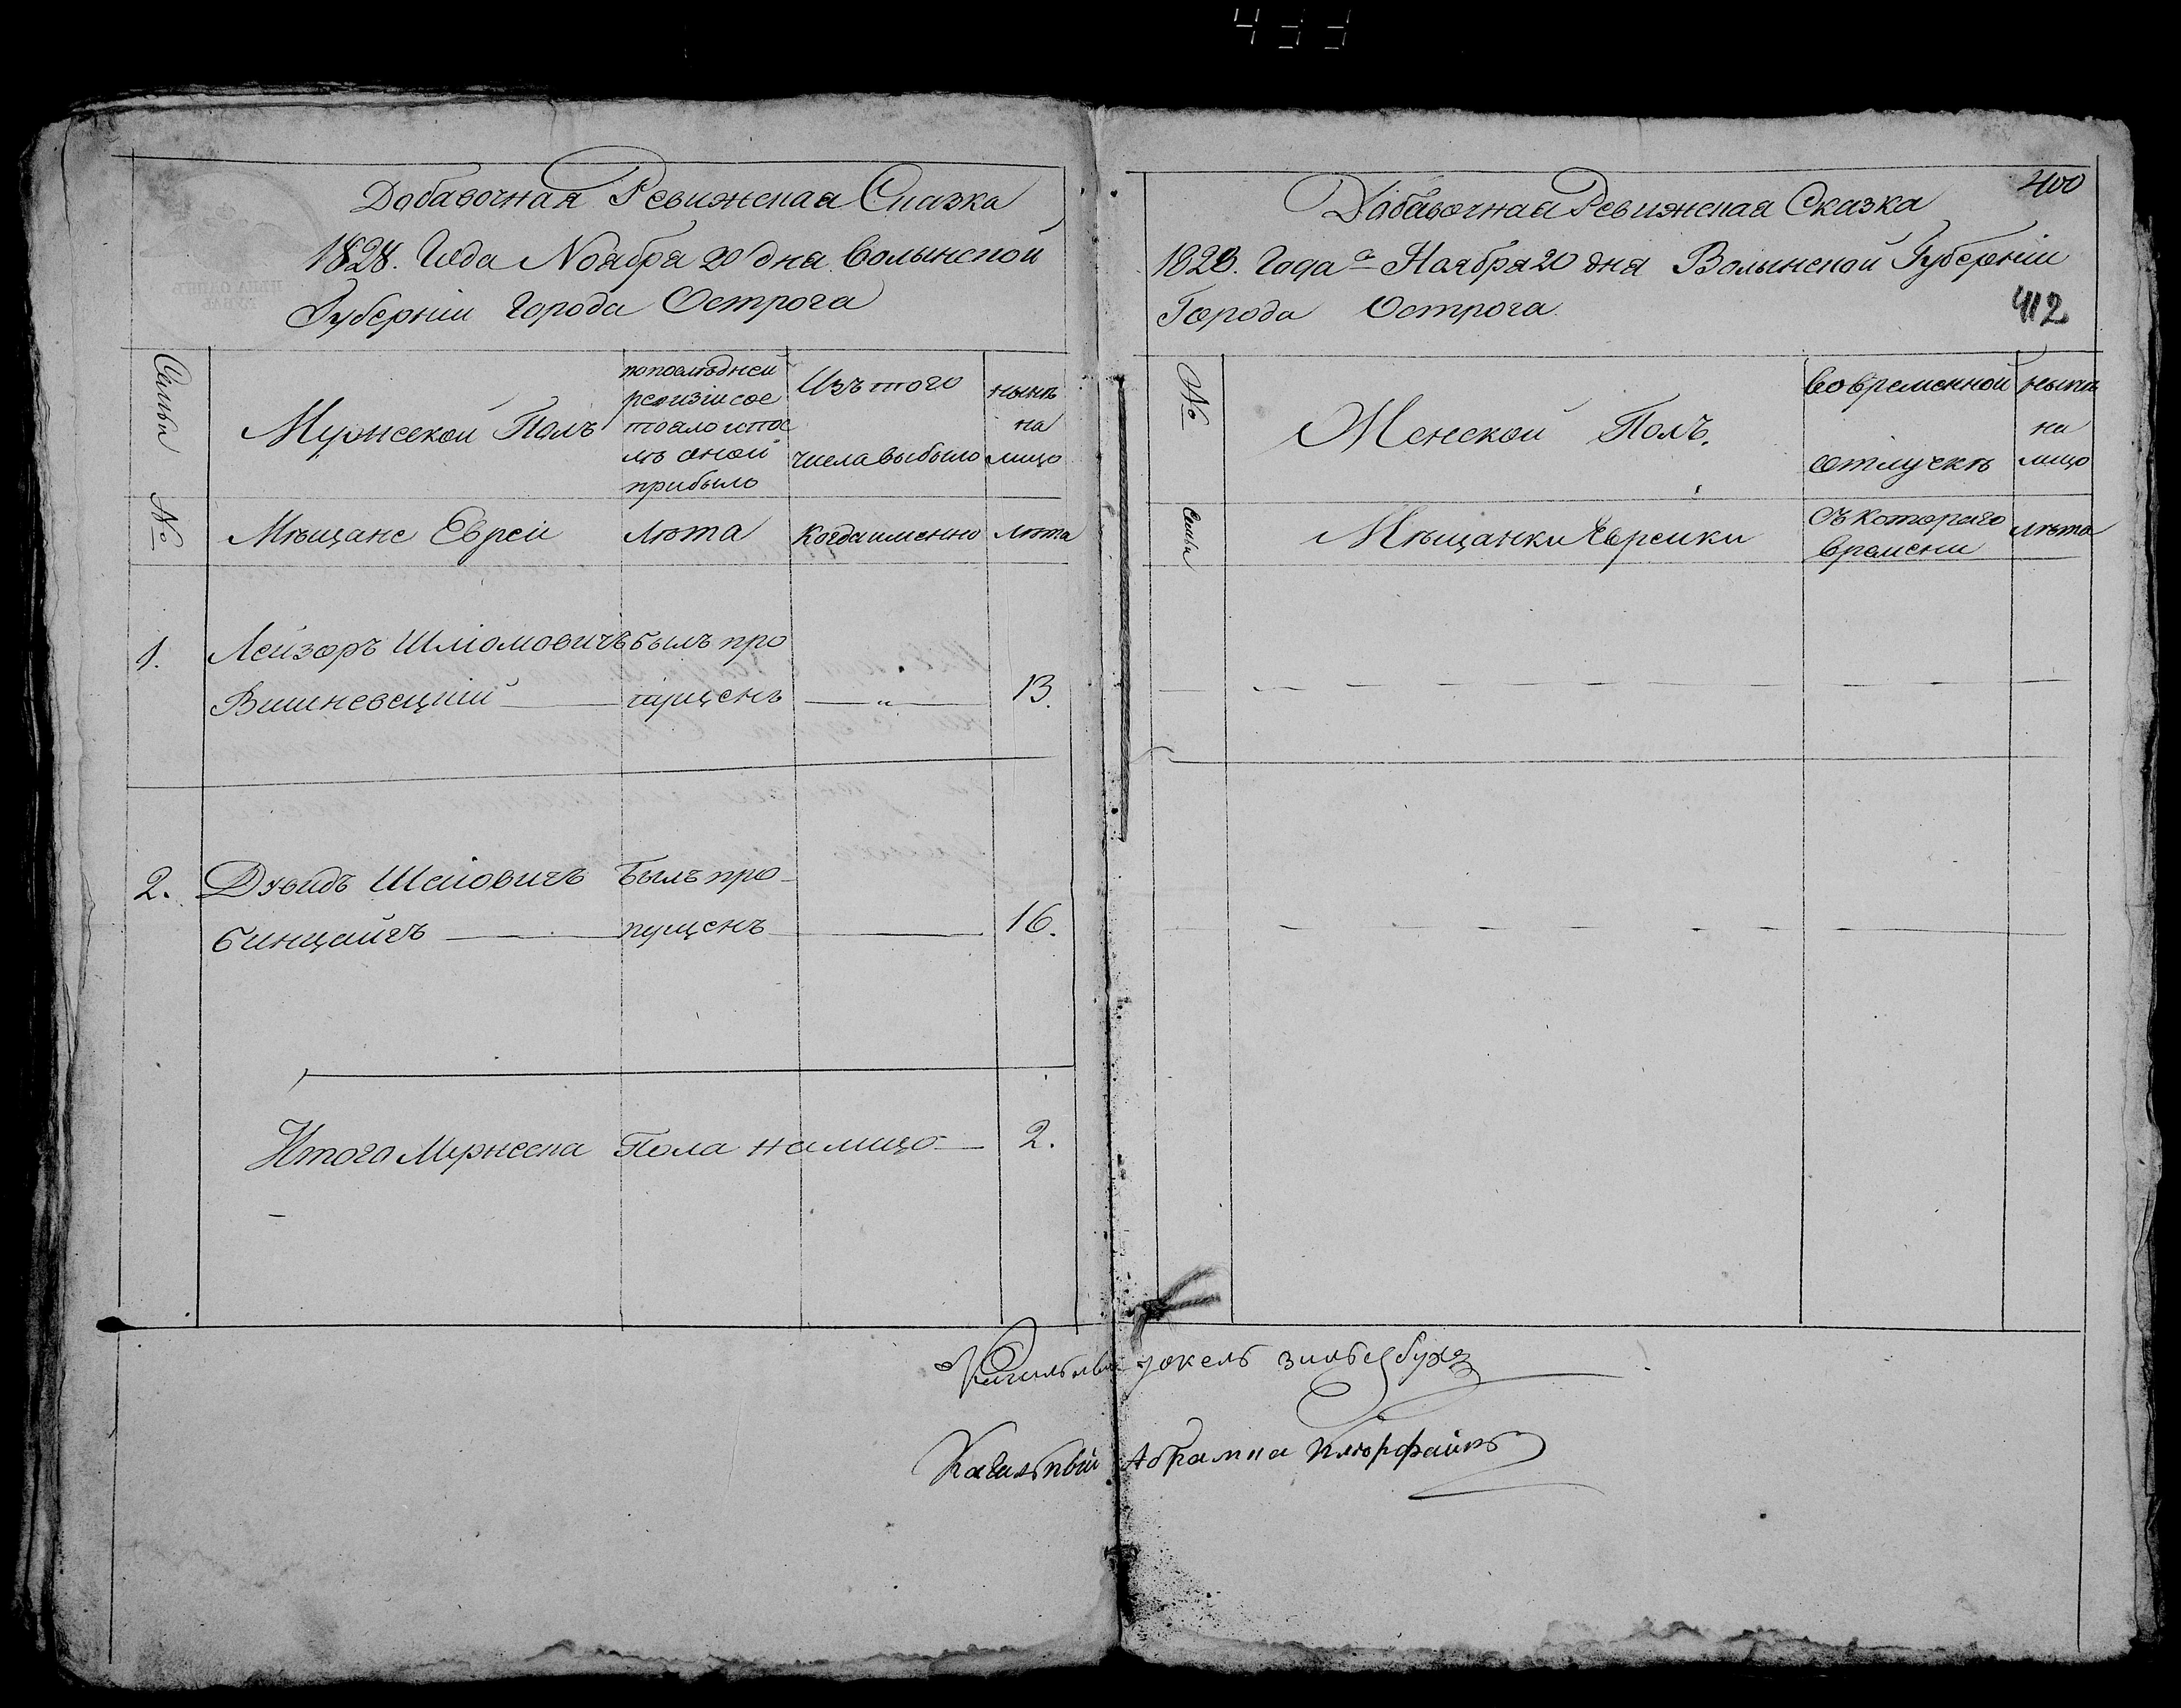 433
Добавочная Ревижская Сказка
1828. Года Ноября 20 дня Волынской
Губерніи Города Острога
Семьи №
Мужескои Полъ
попослѣдней
ревизіи сос
тояло и пос
лѣ оной
прибыло
Изъ того
числа выбыло
нынѣ
на
лицо
Мѣщане Евреи
Лѣта
Когда именно
Лѣта
1.
Лейзоръ Шліомовичъ былъ про
Вишневецкій пущенъ 13.
2.
Дувидъ Шліовичъ Былъ про
пущенъ 16.
Итого Мужеска Пола налицо 2.
400
Добавочная Ревижская Сказка
1828. Года Ноября 20 дня Волынской Губерніи
Города Острога
412
№ Семьи
Женской Полъ.
Во временной
отлучкѣ
нынѣ
на
лицо
Мѣщанки Еврейки
Съ котораго
времени
Лѣта
Кагальный
Кагальный Абрамка